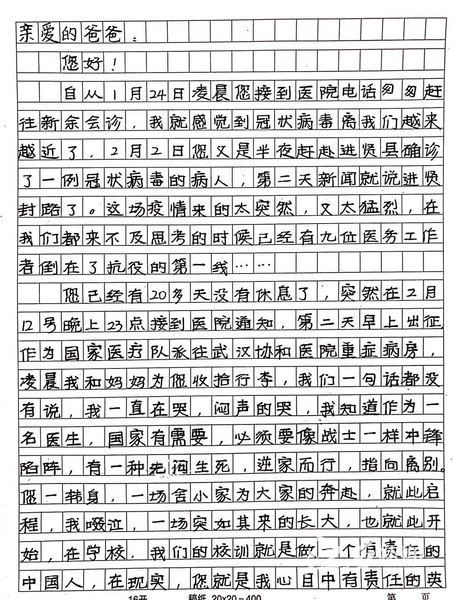 亲爱的爸爸:
您好!
自从1月24日凌晨您接到医院电话匆匆赶
往新余会诊,我就感觉到冠状病毒离我们越来
越近了,2月2日您又是半夜赶赴进贤县确诊
了一例冠状病毒的病人,第二天新闻就说进贤
封路了。这场疫情来的太突然,又太猛烈,在
我们都来不及思考的时候已经有九位医务工作
者倒在了抗疫的第一线……
您已经有20多天没有休息了,突然在2月
12号晚上23点接到医院通知,第二天早上出征,
作为国家医疗队派往武汉协和医院重症病房,
凌晨我和妈妈为您收拾行李,我们一句话都没
有说,我一直在哭,闷声的哭,我知道作为一
名医生,国家有需要,必须要像战士一样冲锋
陷阵,有一种 生死,逆家而行,指向离别。
您一转身,一场舍小家为大家的奔赴,就此启
程,我 泣,一场突如其来的长大,也就此开
始,在学校,我们的校训就是做一个有责任的
中国人,在现实,您就是我心目中有责任的英
16开 稿纸 20×20=400 第 页